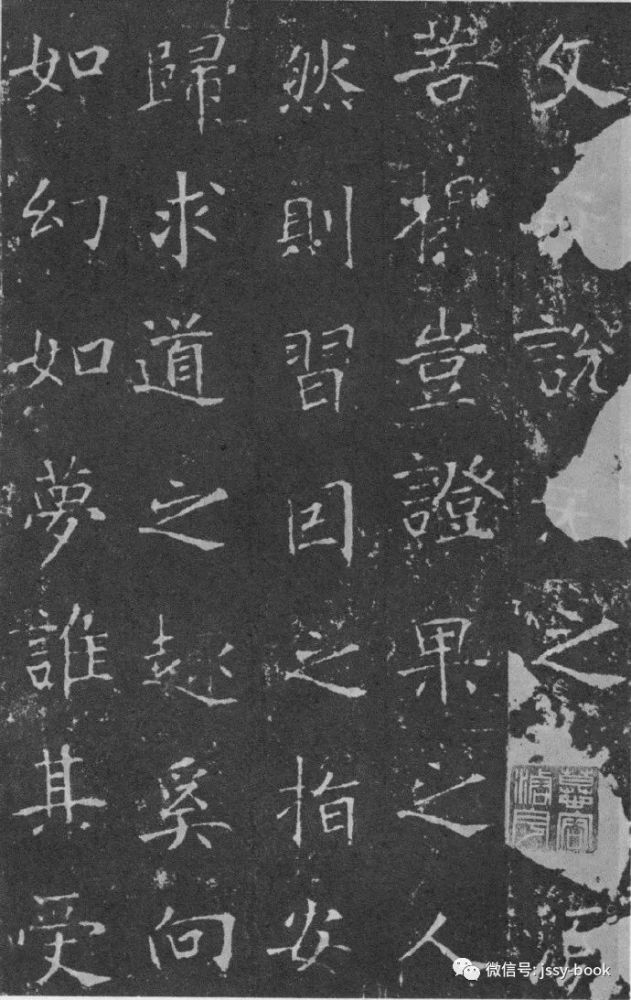 文說之
菩豈證果之人
然則習因之指安
歸求道之趣奚向
如幻如夢誰其受
微信号: jssy-book